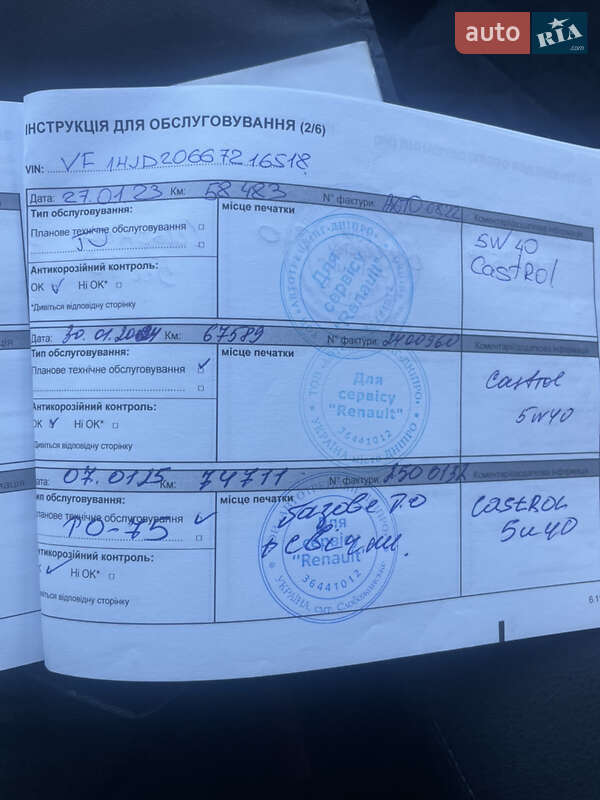 auto RIA .com
ІНСТРУКЦІЯ ДЛЯ ОБСЛУГОВУВАННЯ (2/6)
VIN: VF1HJD20667216518
Дата: 27.01.23 Км: 58 483 N° фактури: Коментарі/додаткова інформація
Тип обслуговування:
місце печатки
Планове технічне обслуговування
Антикорозійний контроль:
OK Ні OK*
*Дивіться відповідну сторінку
Для сервісу "Renault"
5W40
Castrol
Дата: 30.01.2024 Км: 67589 N° фактури: 2400360 Коментарі/додаткова інформація
Тип обслуговування:
місце печатки
Планове технічне обслуговування
Антикорозійний контроль:
OK Ні OK*
*Дивіться відповідну сторінку
Для сервісу "Renault"
36441012
УКРАЇНА, місто ДНІПРО
Castrol
5w40
Дата: 07.01.25 Км: 74711 N° фактури: 250 0132 Коментарі/додаткова інформація
Тип обслуговування:
місце печатки
Планове технічне обслуговування
ТО-75
Антикорозійний контроль:
Ні OK*
*Дивіться відповідну сторінку
базове ТО
+ свічки
Для сервісу "Renault"
36441012
УКРАЇНА, смт.
CASTROL
5w40